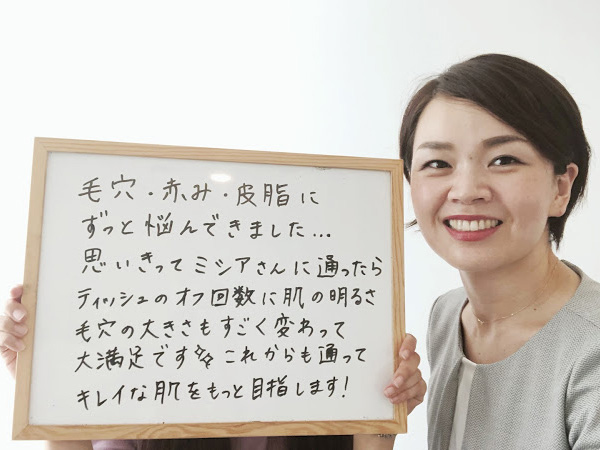 毛穴・赤み・皮脂に
ずっと悩んできました...
思いきってミシアさんに通ったら
ティッシュのオフ回数に肌の明るさ
毛穴の大きさもすごく変わって
大満足です これからも通って
キレイな肌をもっと目指します!